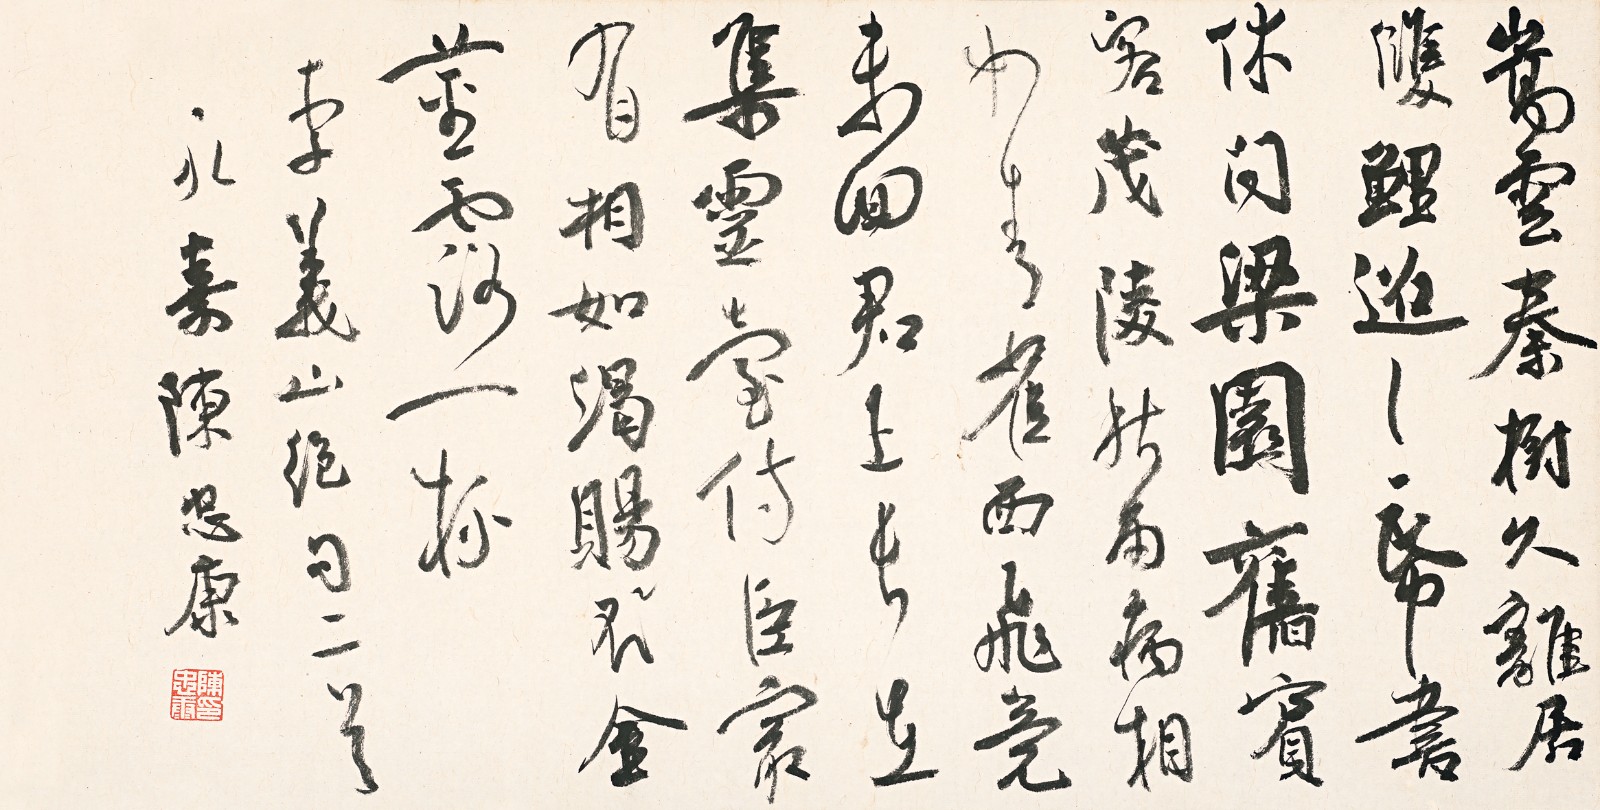 嵩雲秦樹久離居
雙鯉迢々一帋書
休問梁園舊賓
客茂陵秋雨病相
如青雀西飛竟
未回君王長在
集靈臺侍臣最
有相如渴賜不金
莖露一杯
李義山絕句二首
永嘉陳忠康
陳印忠康